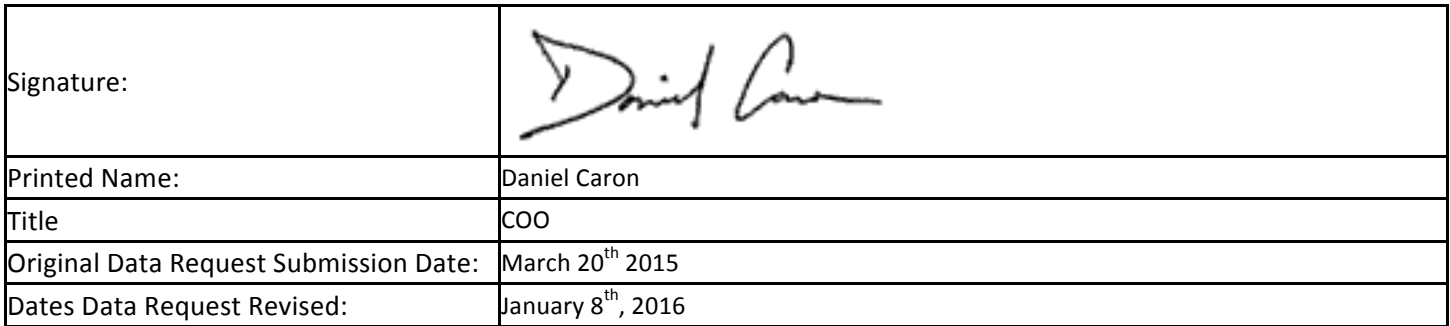 Signature: Daniel Caron
Printed Name: Daniel Caron
Title COO
Original Data Request Submission Date: March 20th 2015
Dates Data Request Revised: January 8th, 2016